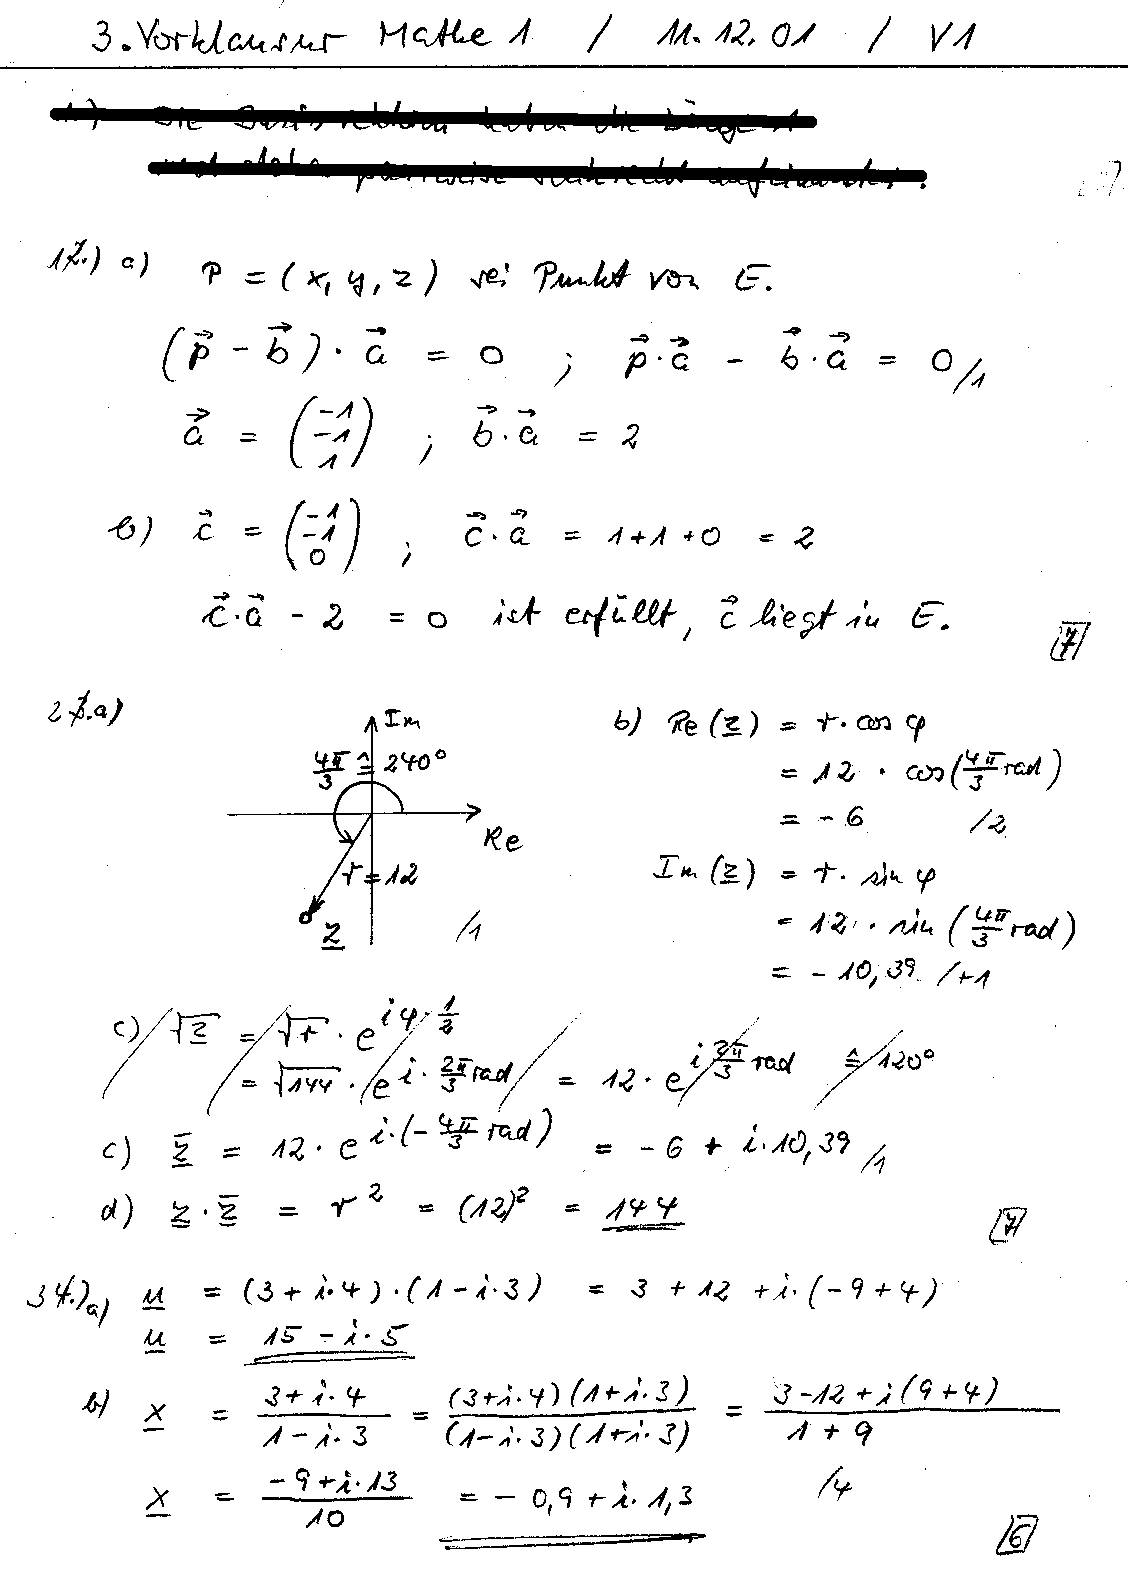 3. Vorklausur Mathe 1 / 11.12.01 / V1
1.) a) P = (x, y, z) sei Punkt von E.
(p⃗ - b⃗) · a⃗ = 0 ; p⃗·a⃗ - b⃗·a⃗ = 0 /1
a⃗ = (-1 -1 1) ; b⃗·a⃗ = 2
b) c⃗ = (-1 -1 0) ; c⃗·a⃗ = 1+1+0 = 2
c⃗·a⃗ - 2 = 0 ist erfüllt, c⃗ liegt in E.
7
2.a)
Im
4π/3 ≙ 240°
Re
r = 12
z
/1
b) Re(z) = r·cos φ
= 12 · cos(4π/3 rad)
= -6 /2
Im(z) = r · sin φ
= 12 · sin(4π/3 rad)
= -10,39 /+1
c) √z = √r · e^(iφ·1/2)
= √144 · e^(i·2π/3 rad) = 12 · e^(i 2π/3 rad) ≙ 120°
c) z̄ = 12 · e^(i·(-4π/3 rad)) = -6 + i·10,39 /1
d) z·z̄ = r² = (12)² = 144
7
3.)a) u = (3+i·4)·(1-i·3) = 3 + 12 + i·(-9+4)
u = 15 - i·5
b) x = (3+i·4)/(1-i·3) = (3+i·4)(1+i·3)/(1-i·3)(1+i·3) = (3-12+i(9+4))/(1+9)
x = (-9+i·13)/10 = -0,9 + i·1,3 /4
6